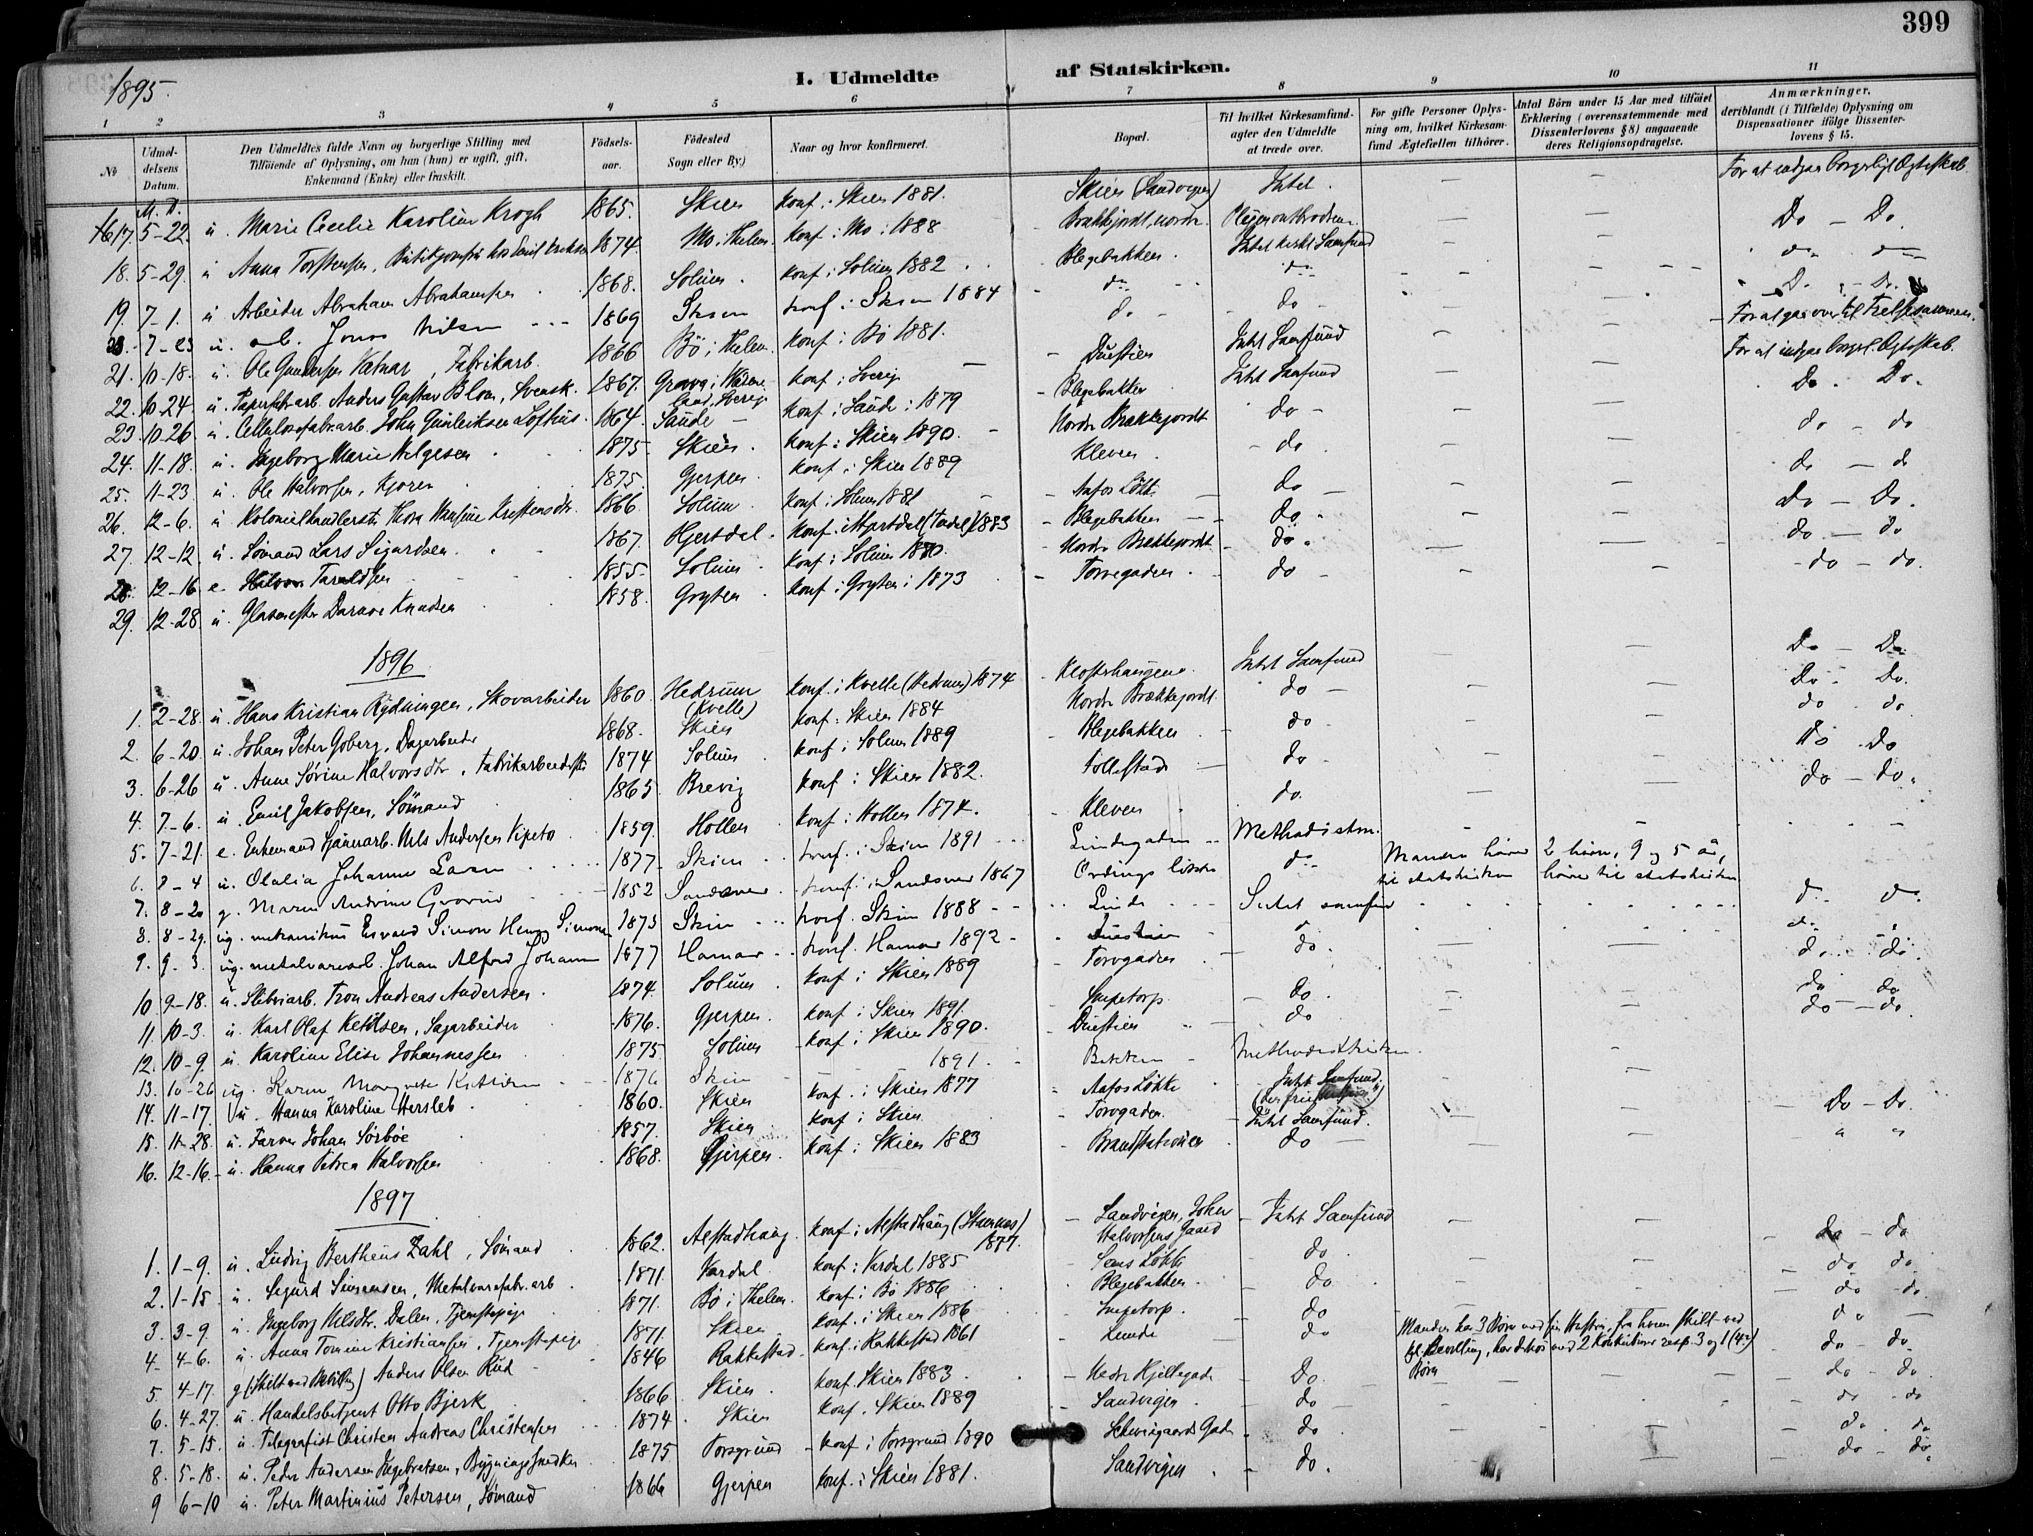 399
1895
I. Udmeldte af Statskirken.
1 2 3 4 5 6 7 8 9 10 11
№
Udmeldelsens Datum.
Den Udmeldtes fulde Navn og borgerlige Stilling med Tilföiende af Oplysning, om han (hun) er ugift, gift, Enkemand (Enke) eller fraskilt.
Födsels-aar.
Födested Sogn eller By)
Naar og hvor konfirmeret.
Bopæl.
Til hvilket Kirkesamfund agter den Udmeldte at træde over.
For gifte Personer Oplysning om, hvilket Kirkesamfund Ægtefællen tilhörer.
Antal Börn under 15 Aar med tilföiet Erklæring (overensstemmende med Dissenterlovens § 8) angaaende deres Religionsopdragelse.
Anmærkninger, deriblandt (i Tilfælde) Oplysning om Dispensationer ifölge Dissenterlovens § 15.
M. D.
17 5-22. u. Marie Cecilie Karoline Krogh 1865. Skien konf. i Skien 1881. Skien (Sandvigen) Intet. — — For at indgaa borgerligt Ægteskab
18. 5-29. u Anna Torstensen, 1874. Mo i Thelem. konf. i Mo i 1888 — — Do — Do.
19. 7-1. u Arbeider Abraham Abrahamsen 1868. Solum. konf. i Solum 1882 Blegebakken. Intet kirkl. Samfund — — do — do
7-23 u. arb. Jonas Nilsen 1869 Skien konf. i Skien 1884 do do — — Do — Do.
21. 10-18. u. Ole Gundersen Vatnar, Fabrikarb. 1866 Bö i Thelem. konf. i Bö 1881. do do — — For at gaa over til Frelsesarmeen.
22. 10-24 u. Papirfabr.arb. Anders Gustav Blom, Svensk. 1867. konf. i Sverig — Duestien Intet Samfund — — For at indgaa borgerl. Ægteskab.
23. 10-26 u. Cellulosefabr.arb. John Gunleiksen Lofthus. 1864. Saude konf. i Saude i 1879 Blegebakken Intet Samfund — — Do. Do.
24. 11-18. u. Ingeborg Marie Helgesen 1875 Skien. konf. i Skien 1890. Nordre Brækkejordet do — — do — do
25. 11-23 u. Ole Halvorsen, 1875. Gjerpen. konf. i Skien 1889 Kleven. do — — do — do
26. 12-6. u Kolonialhandlerske Thora Hansine Kristensdr. 1866 Solum. konf. i Solum 1881 do — — Do — Do.
27. 12-12. u. Sömand Lars Sigurdsen. 1867. Hjertdal. konf. i Hjertdal 1883 Blegebakken do. — — do — do
28. 12-16 e. Halvor Taraldsen 1855. Solum konf. i Solum 1870. Nordre Brækkejordet do. — — do — do.
29. 12-28. u. Glasmester Knudsen 1858. Gryten konf. i Gryten i 1873 Torvegaden. do
1896
1. 2-28. u. Hans Kristian Rydningen, Skovarbeider 1860. Hedrum (Kvelle) konf. i Kvelle (Hedrum) 1874 Klosterhaugene. Intet Samfund — — Do — Do
2. 6-20 u. Johan Peter Goberg, Dagarbeider 1868. Skien konf. i Skien 1884 Nordre Brækkejordet. do — — Do. Do.
3. 6-26 u. Anne Sörine Halvorsdtr., Fabrikarbeiderske 1874 Solum konf. i Solum 1889 Blegebakken do — — do. do.
4. 7-6. u. Emil Jakobsen, Sömand 1865 Brevig konf. i Skien 1882. Follestad do — — Do Do
5. 7-21. e. Enkemand Nils Andersen 1859. Hollen konf. i Hollen 1874. Kleven do. — — do — do.
6. 8-4 u. Olalia Johanne 1877 Skien konf. i Skien 1891 Lindegaden Methodistm. — — —
7. 8-20 g. Maren Andrine 1852 Sandsver konf. i Sandsver 1867 do Manden hörer til statskirken 2 börn, 9 og 5 år, hörer til statskirken
8. 8-29. ug. mekanikus Simon 1873 Skien konf. Skien 1888 Lunde Intet samfund do. do.
9. 9-3. ug. metalvarearb. Johan Alfred 1877 Hamar konf. Hamar 1892 Duestien do. do.
10 9-18. u. Sliberiarb. Tron Andreas Andersen. 1874. Solum konf. i Skien 1889 Torvgaden do. — — do. do.
11. 10-3. u. Karl Olaf Ketilsen, Sagarbeider 1876. Gjerpen. konf. i Skien 1891. do. — — do do
12. 10-9. u. Karoline Elise Johannessen 1875 Solum konf. i Skien 1890. Duestien do — — do — do.
13. 10-26 ug. Karen Margrete 1876 Skien 1891. Bakken Methodistkirken.
14. 11-17. u. Hanna Karoline Hersleb 1860. Skien konf. i Skien 1877 Aafos Lökke Intet Samfund
15. 11-28. u. Farver Johan Sörböe 1857. Skien konf. i Skien Torvgaden. Intet Samfund. — — Do — Do.
16. 12-16. u. Hanna Petrea Halvorsen 1868. Gjerpen. konf. i Skien 1883 Brandstationen do — — " "
1897
1. 1-9. u. Ludvig Bertheus Zahl, Sömand 1862. Alstadhaug. konf. i Alstadhaug 1877. Sandvigen, Johan Halvorsens Gaard Intet Samfund — — Do — do
2. 1-15 u. Sigurd Simensen, Metalvarefabr.arb. 1871. Vardal konf. i Vardal 1885 do. — — do. do.
3. 3-9. u. Ingeborg Nilsdtr. Dalen, Tjenestepige 1871. Bö i Thelem. konf. i Bö 1886 Blegebakken. do — — do — do.
4. 4-6. u. Anna Kristiansen, Tjenestepige 1871. Skien konf. i Skien 1886 do — — do —
5. 4-17. g. Anders Olsen Rüd 1846 Rakkestad konf. i Rakkestad 1861 Lunde do Manden har 3 Börn med sin Hustru, fra hvem skilt ved kgl. Bevilling, har desuden med 2 Konkubiner resp. 3 og 1 Börn do — do.
6. 4-27. u. Handelsbetjent Otto Bjerk 1866 Skien. konf. Skien 1883. Nedre Hjellegade Do. — — do — do.
7. 5-15. u. Telegrafist Christen Andreas Christensen 1874 Skien konf. Skien 1889 Sandvigen. do — — do — do
8. 5-18. u. Peder Andersen Ingebretsen, Bygningssnedker 1875 Porsgrund konf. i Porsgrund 1890 Schweigaards Gade do. — — do. do
9 6-10 u. Peter Martinius Petersen, Sömand 1866 Gjerpen konf. i Skien 1881. Sandvigen do. — — do — do.